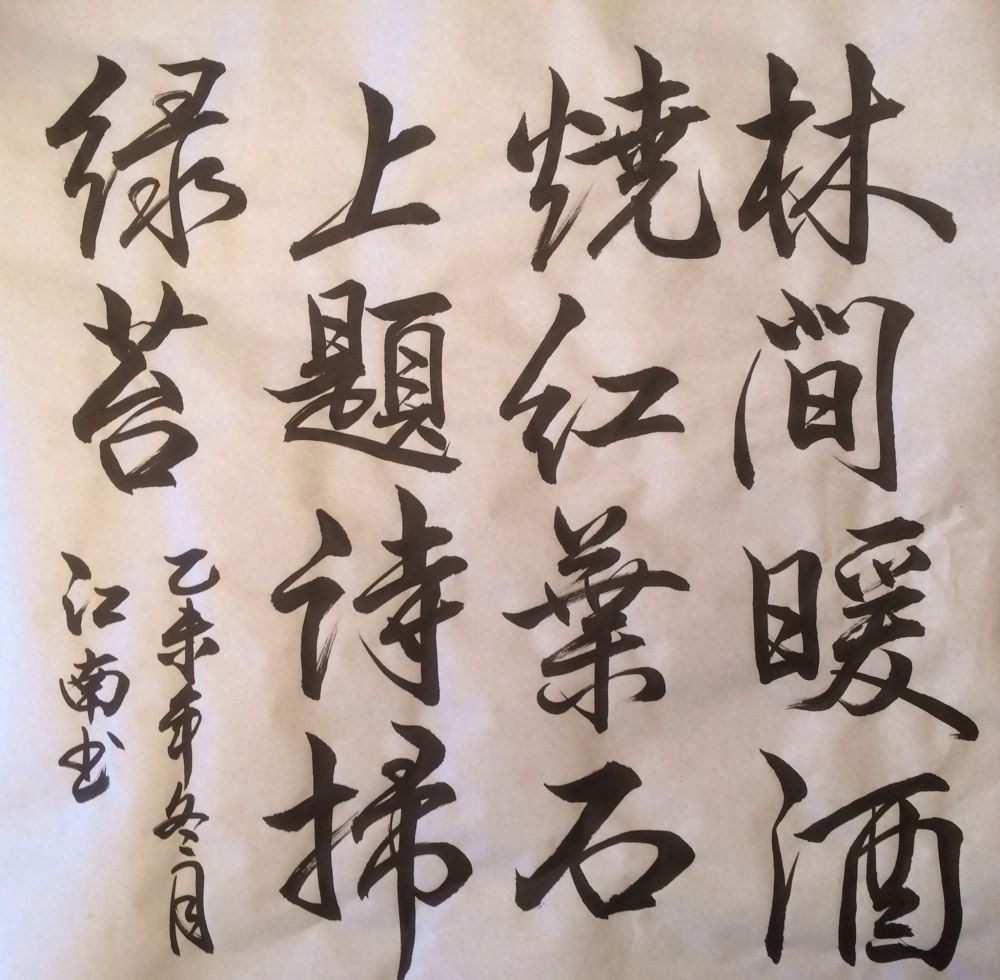 林間暖酒
燒紅葉石
上題诗掃
绿苔
乙未年冬月
江南书